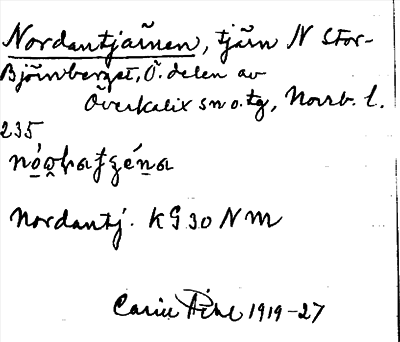 Nordantjärnen, tjärn N Stor-
Björnberget, Ö. delen av
Överkalix sn o. tg, Norrb. l.
235
Nordantj. KG 30 N M
Carin Pihl 1919-27